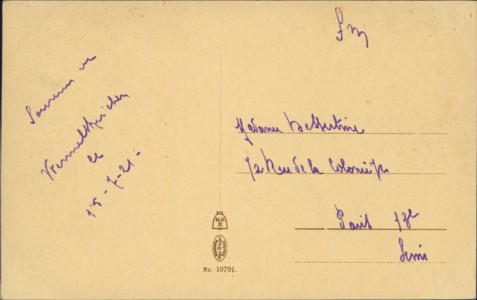 F M
Souvenir de
Wermelskirchen
le
15-7-21-
Madame Delestrine
72 Rue de la Colonie
Paris 13e
Seine
Nr. 10791.